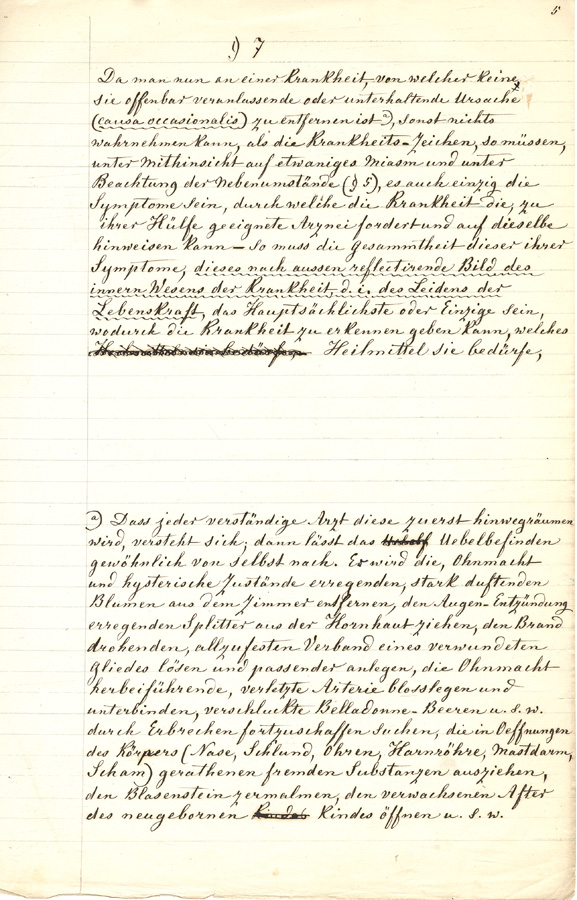 5
§ 7
Da man nun an einer Krankheit, von welcher keine
sie offenbar veranlassende oder unterhaltende Ursache
(causa occasionalis) zu entfernen ist a), sonst nichts
wahrnehmen kann, als die Krankheits-Zeichen, so müssen,
unter Mithinsicht auf etwaniges Miasm und unter
Beachtung der Nebenumstände (§ 5), es auch einzig die
Symptome sein, durch welche die Krankheit die, zu
ihrer Hülfe geeignete Arznei fordert und auf dieselbe
hinweisen kann – so muss die Gesammtheit dieser ihrer
Symptome, dieses nach aussen reflectirende Bild des
innern Wesens der Krankheit, d. i. des Leidens der
Lebenskraft, das Hauptsächlichste oder Einzige sein,
wodurch die Krankheit zu erkennen geben kann, welches
Heilmittel sie bedürfe,
a) Dass jeder verständige Arzt diese zuerst hinwegräumen
wird, versteht sich; dann lässt das Uebelbefinden
gewöhnlich von selbst nach. Er wird die, Ohnmacht
und hysterische Zustände erregenden, stark duftenden
Blumen aus dem Zimmer entfernen, den Augen-Entzündung
erregenden Splitter aus der Hornhaut ziehen, den Brand
drohenden, allzufesten Verband eines verwundeten
Gliedes lösen und passender anlegen, die Ohnmacht
herbeiführende, verletzte Arterie blosslegen und
unterbinden, verschluckte Belladonne-Beeren u. s. w.
durch Erbrechen fortzuschaffen suchen, die in Oeffnungen
des Körpers (Nase, Schlund, Ohren, Harnröhre, Mastdarm,
Scham) gerathenen fremden Substanzen ausziehen,
den Blasenstein zermalmen, den verwachsenen After
des neugebornen Kindes öffnen u. s. w.